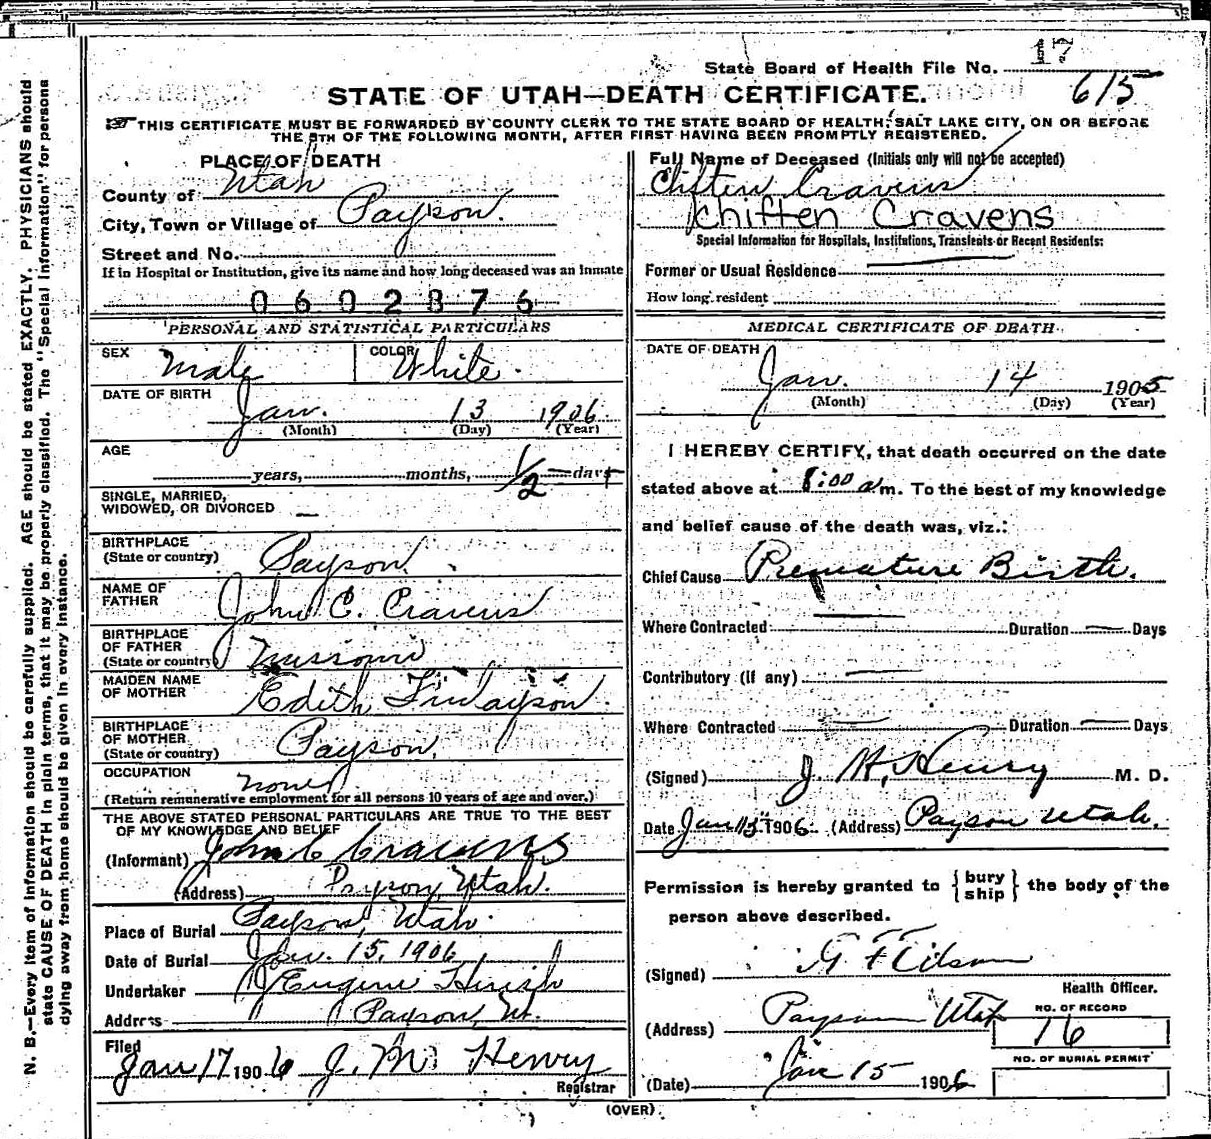 17
State Board of Health File No. 615
STATE OF UTAH—DEATH CERTIFICATE.
THIS CERTIFICATE MUST BE FORWARDED BY COUNTY CLERK TO THE STATE BOARD OF HEALTH, SALT LAKE CITY, ON OR BEFORE
THE 5TH OF THE FOLLOWING MONTH, AFTER FIRST HAVING BEEN PROMPTLY REGISTERED.
PLACE OF DEATH
County of Utah
City, Town or Village of Payson.
Street and No.
If in Hospital or Institution, give its name and how long deceased was an Inmate
0602876
PERSONAL AND STATISTICAL PARTICULARS
SEX Male COLOR White.
DATE OF BIRTH
Jan. 13 1906
(Month) (Day) (Year)
AGE
years, months, 1/2 days
SINGLE, MARRIED,
WIDOWED, OR DIVORCED —
BIRTHPLACE
(State or country) Payson.
NAME OF
FATHER John C. Cravens
BIRTHPLACE
OF FATHER
(State or country) Missouri
MAIDEN NAME
OF MOTHER Edith Finlayson.
BIRTHPLACE
OF MOTHER
(State or country) Payson.
OCCUPATION none
(Return remunerative employment for all persons 10 years of age and over.)
THE ABOVE STATED PERSONAL PARTICULARS ARE TRUE TO THE BEST
OF MY KNOWLEDGE AND BELIEF
(Informant) John C Cravens
(Address) Payson, Utah.
Place of Burial Payson, Utah.
Date of Burial Jan. 15, 1906
Undertaker Eugene Hirish
Address Payson, Ut.
Filed
Jan 17 1906 J. M. Henry
Registrar
Full Name of Deceased (Initials only will not be accepted)
Chiften Cravens
Chiften Cravens
Special Information for Hospitals, Institutions, Transients or Recent Residents:
Former or Usual Residence —
How long resident
MEDICAL CERTIFICATE OF DEATH
DATE OF DEATH
Jan. 14 1905
(Month) (Day) (Year)
I HEREBY CERTIFY, that death occurred on the date
stated above at 8:00 a m. To the best of my knowledge
and belief cause of the death was, viz.:
Chief Cause Premature Birth.
Where Contracted — Duration — Days
Contributory (If any) —
Where Contracted — Duration — Days
(Signed) J. M. Henry M. D.
Date Jan 15 1906. (Address) Payson Utah.
Permission is hereby granted to {bury
ship} the body of the
person above described.
(Signed)
Health Officer.
(Address) Payson Utah
NO. OF RECORD
16
NO. OF BURIAL PERMIT
(Date) Jan 15 1906
(OVER)
N. B.—Every item of information should be carefully supplied. AGE should be stated EXACTLY. PHYSICIANS should
state CAUSE OF DEATH in plain terms, that it may be properly classified. The "Special Information" for persons
dying away from home should be given in every instance.